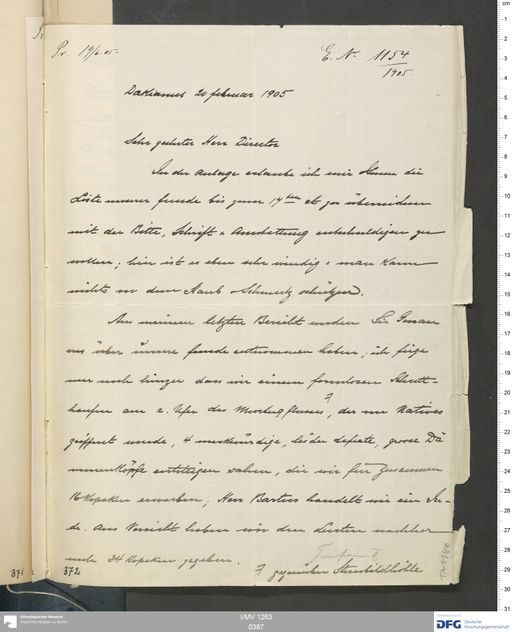 Pr. 19/6. 05.
E. No 1154
1905.
Dakianus 20 februar 1905
Sehr geehrter Herr Director
In der Anlage erlaube ich mir Ihnen die
Liste unserer funde bis zum 17ten ct zu übersenden
mit der Bitte, Schrift u Ausstattung entschuldigen zu
wollen; hier ist es eben sehr windig u man kann
nichts vor dem Staub u Schmutz schützen.
Aus meinem letzten Bericht werden Sie Genau
es über unsere funde entnommen haben; ich füge
nur noch hinzu dass wir einem formlosen Schutt-
haufen am r. Ufer des Murtuqflusses ?, der von Natives
geöffnet wurde, 4 merkwürdige, leider defecte, grosse Dä
monenköpfe entsteigen sahen, die wir für zusammen
16 Kopeken erwarben; Herr Bartus handelt wie ein Ju-
de. Aus Vorsicht haben wir den Leuten nachher
noch 34 Kopeken gegeben.
? gegenüber Sternbildhöhle
371
372
TA 1786
Ethnologisches Museum
Staatliche Museen zu Berlin
I/MV 1263
0387
DFG Deutsche
Forschungsgemeinschaft